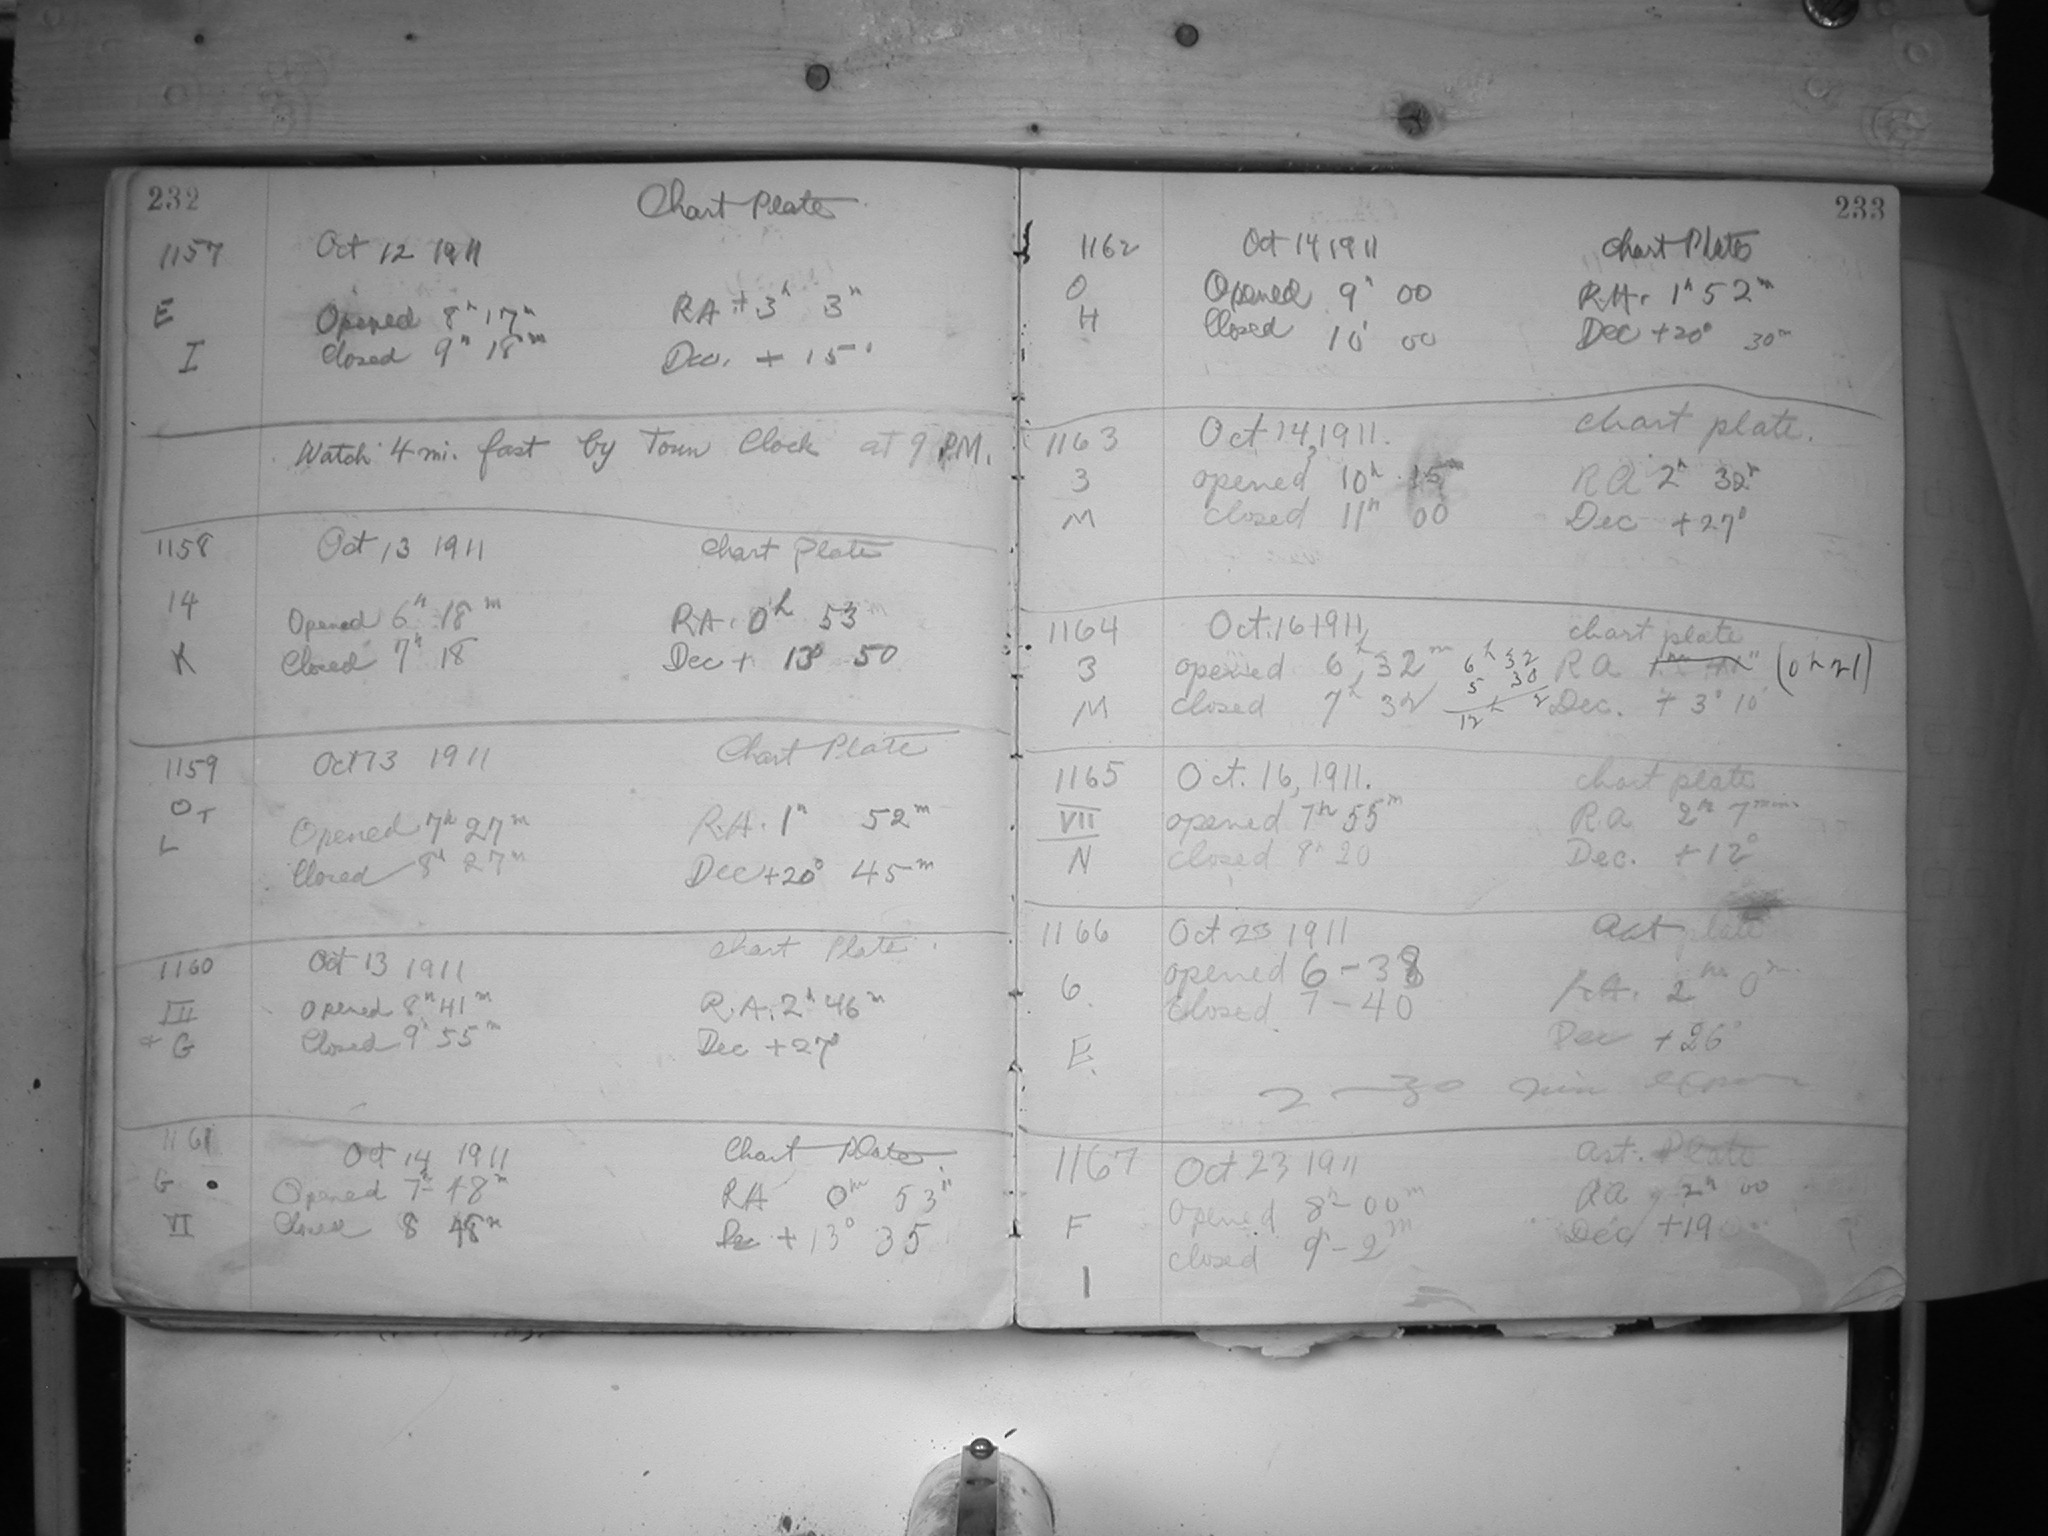 232
Chart Plate
1157 Oct 12 1911
E Opened 8h 17m RA + 3h 3m
I Closed 9h 18m Dec. + 15°
Watch 4 mi. fast by Town Clock at 9 P.M.
1158 Oct 13 1911 Chart Plate
14 Opened 6h 18m RA. 0h 53m
K Closed 7h 18 Dec + 13° 50
1159 Oct 13 1911 Chart Plate
O T Opened 7h 27m R.A. 1h 52m
L Closed 8h 27m Dec +20° 45m
1160 Oct 13 1911 Chart Plate.
III Opened 8h 41m R.A. 2h 46m
+ G Closed 9h 55m Dec +27°
1161 Oct 14 1911 Chart Plate.
G Opened 7h 48m RA 0h 53m
VI Closed 8 48m Dec +13° 35
233
1162 Oct 14 1911 Chart Plate
O Opened 9h 00 R.A. 1h 52m
H Closed 10 00 Dec +20° 30m
1163 Oct 14, 1911. chart plate.
3 opened 10h 15m RA 2h 32m
M closed 11h 00 Dec +27°
1164 Oct. 16 1911 chart plate
3 opened 6h 32m 6h 32 RA (0h 21)
5 30
M closed 7h 32 12h 2 Dec. + 3° 10'
1165 Oct. 16, 1911. chart plate
VII opened 7h 55m R.A. 2h 7min.
N closed 8h 20 Dec. +12°
1166 Oct 23 1911 Ast plate
opened 6-38 R.A. 2h 0m.
6. Closed 7-40
E. Dec +26°
2-30 min expos
1167 Oct 23 1911 ast. Plate
Opened 8h-00m RA 2h 00
F closed 9h-2m Dec +19
1